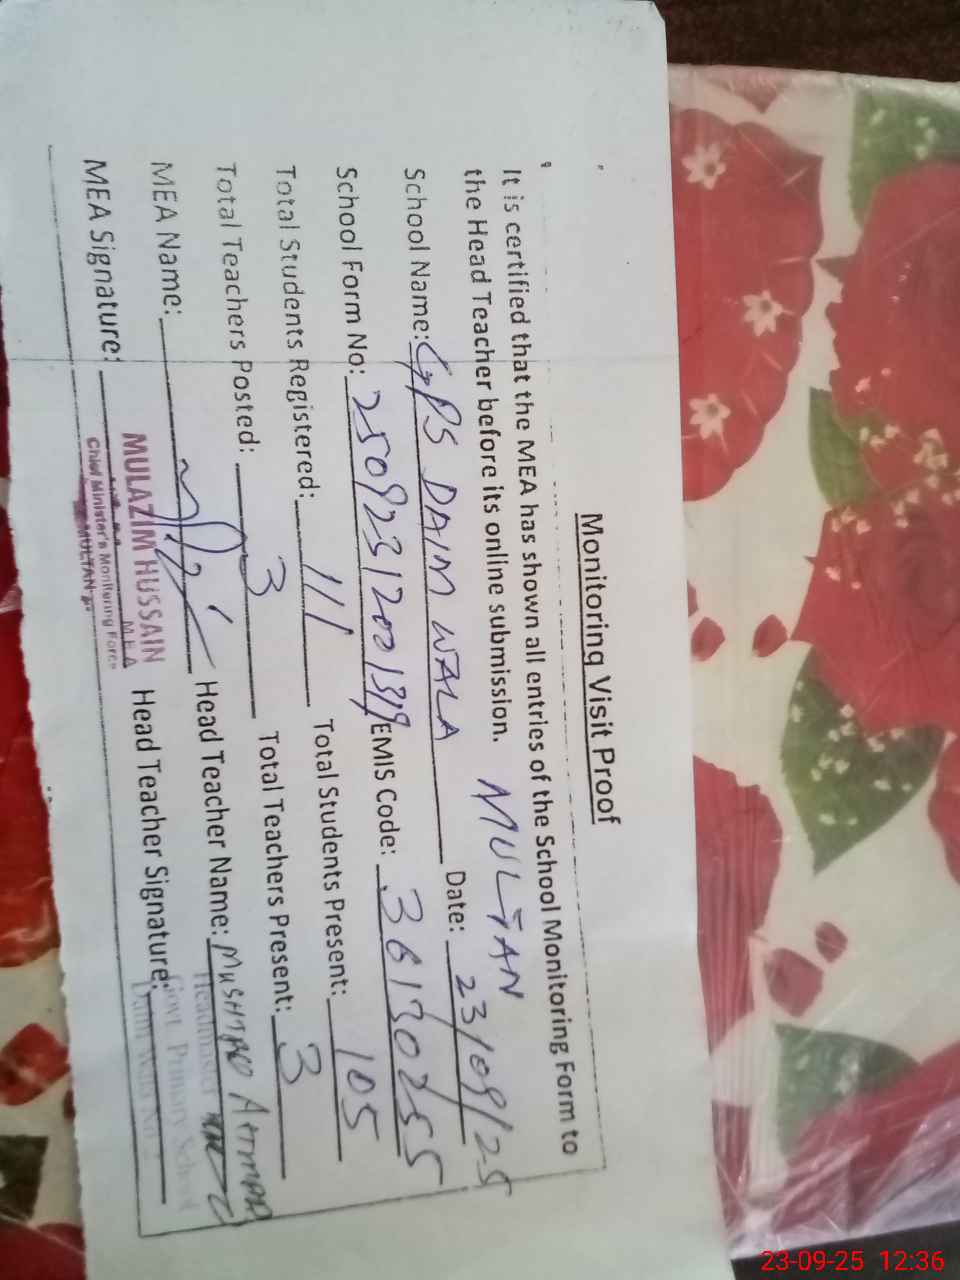 Monitoring Visit Proof
It is certified that the MEA has shown all entries of the School Monitoring Form to
the Head Teacher before its online submission. MULTAN
School Name: GPS DAIM WALA Date: 23/09/25
School Form No: EMIS Code: 36130255
Total Students Registered: 111 Total Students Present: 105
Total Teachers Posted: 3 Total Teachers Present: 3
MEA Name: Head Teacher Name: MUSHTAQ AHMAD
MEA Signature: Head Teacher Signature:
MULAZIM HUSSAIN
M.E.A
Chief Minister's Monitoring Force
MULTAN
Headmaster
Govt. Primary School
23-09-25 12:36